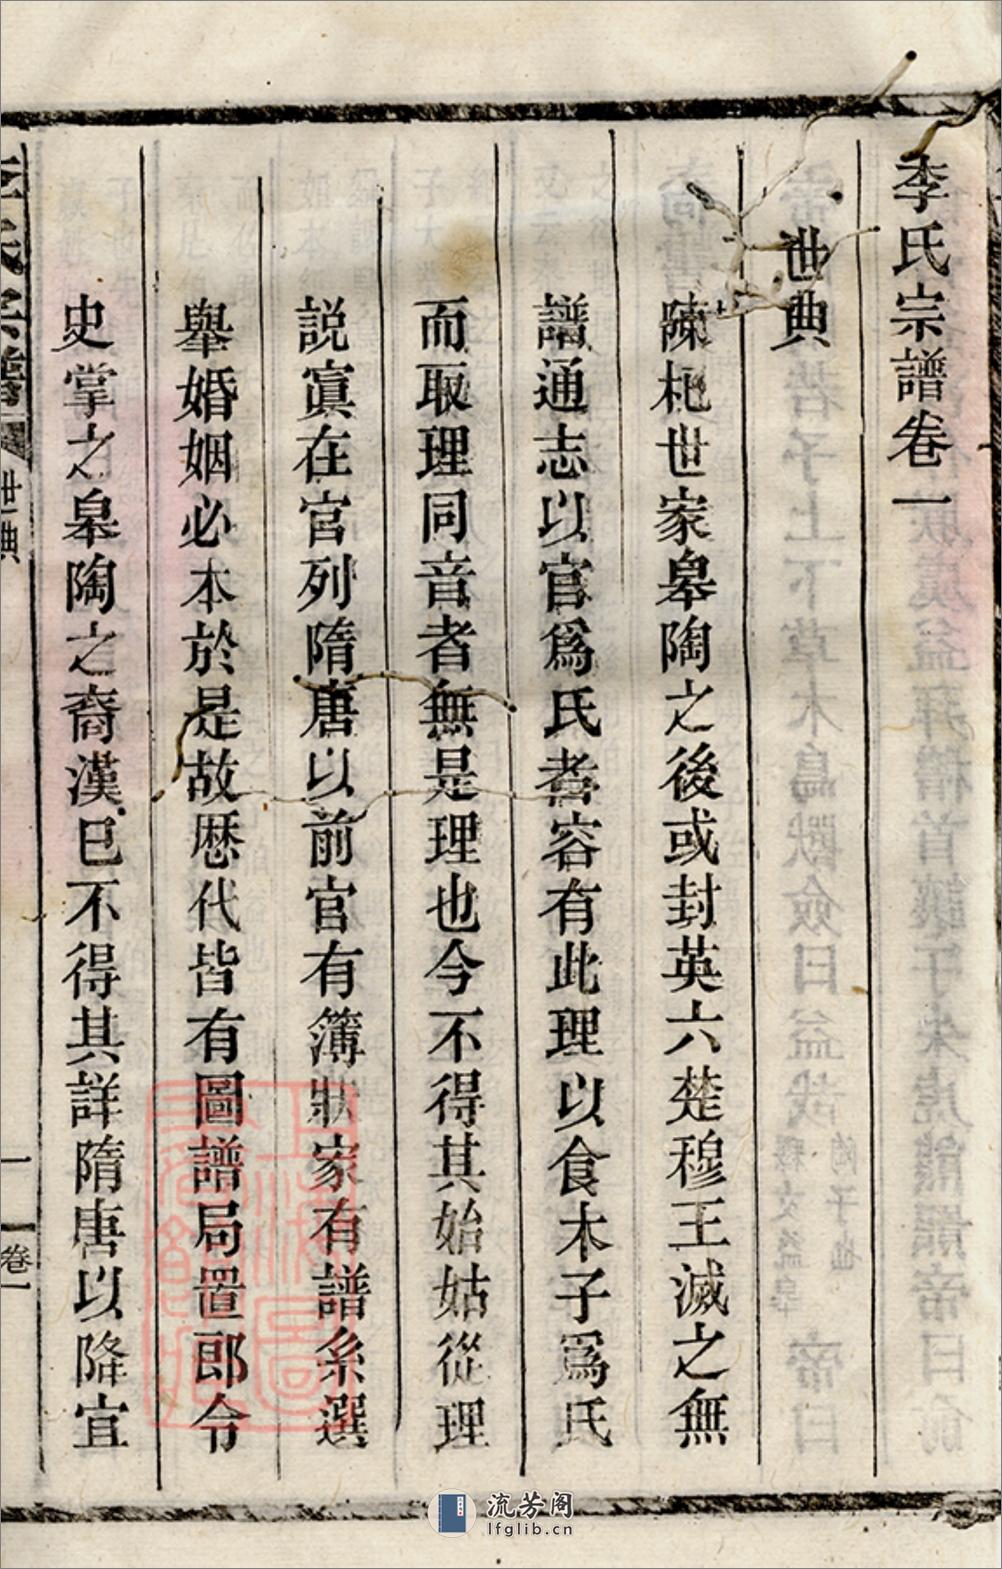 李氏宗譜卷一
世典
陳杞世家皋陶之後或封英六楚穆王滅之無
譜通志以官爲氏者容有此理以食木子爲氏
而取理同音者無是理也今不得其始姑從理
説寘在官列隋唐以前官有簿狀家有譜系選
舉婚姻必本於是故歴代皆有圖譜局置郎令
史掌之皋陶之裔漢巳不得其詳隋唐以降宜
李氏宗譜
世典
一
卷一
流芳阁
lfglib.cn